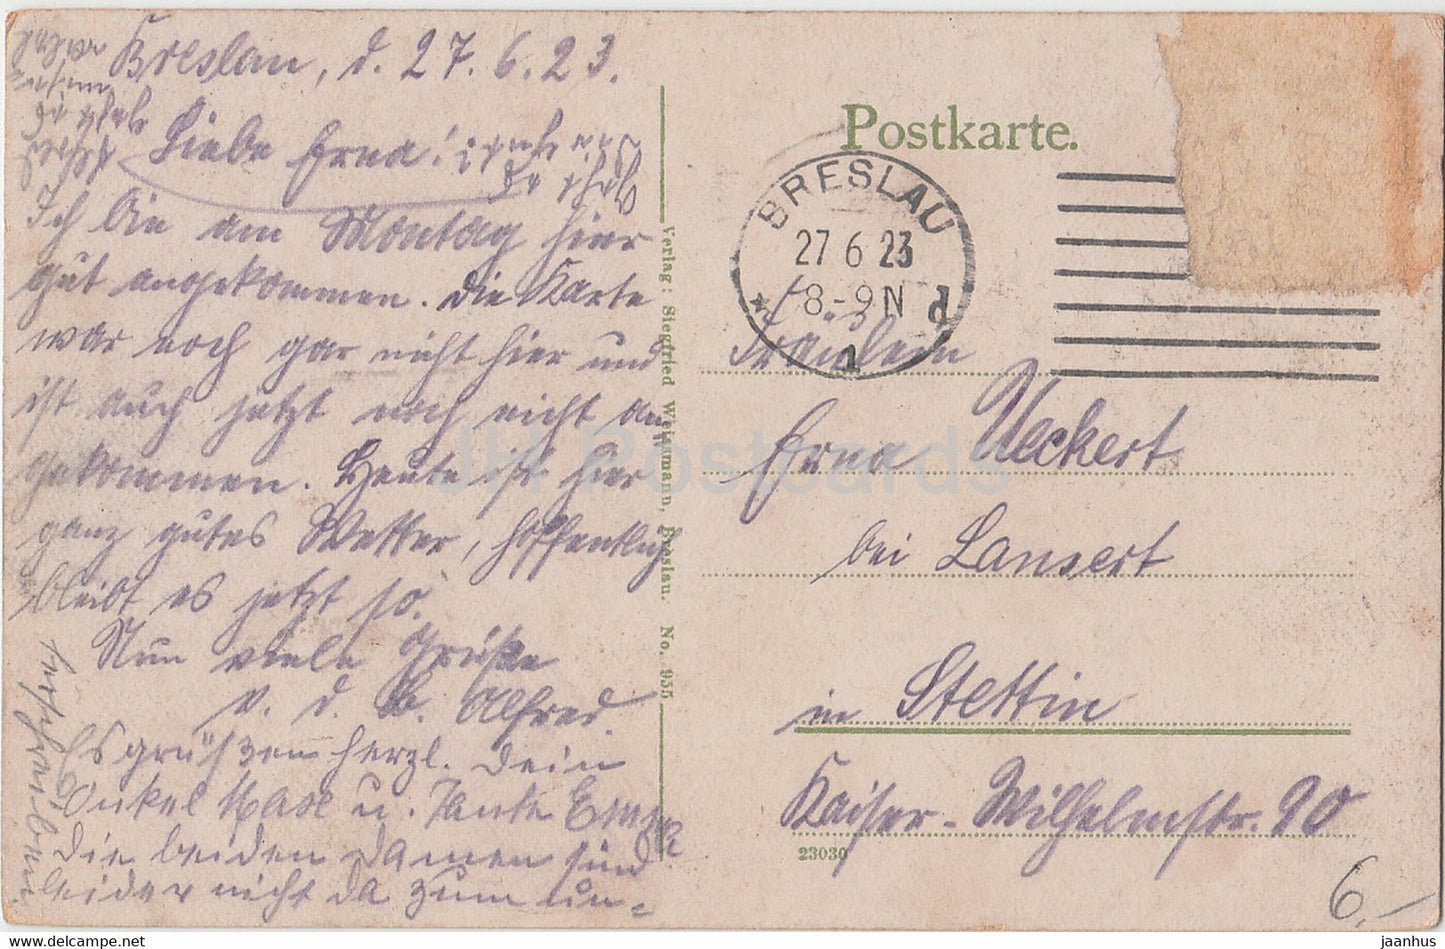 Breslau, d. 27.6.23.
Liebe Erna!
Ich bin am Montag hier
gut angekommen. Die Karte
war noch gar nicht hier und
ist auch jetzt noch nicht an-
gekommen. Heute ist hier
ganz gutes Wetter, hoffentlich
bleibt es jetzt so.
Nun viele Grüße
v. d. Alfred.
Es grüßen herzl. Dein
Onkel Max u. Tante Emma
die beiden Damen sind
leider nicht da zum un-
terschreiben
Verlag: Siegfried Weissmann, Breslau. No. 955
Postkarte.
BRESLAU
27 6 23
8-9 N
* 1 d
Fräulein
Erna Ueckert
bei Lansert
in Stettin
Kaiser-Wilhelmstr. 90
23030
6,-
JH Postcards
jaanhus.com